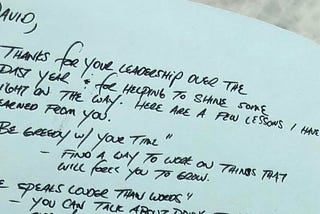 DAVID,
THANKS for YOUR LEADERSHIP OVER THE
PAST YEAR & for HELPING TO SHINE SOME
LIGHT ON THE WAY. HERE ARE A FEW LESSONS I HAVE
LEARNED FROM YOU.
"BE GREEDY W/ YOUR TIME"
- FIND A WAY TO WORK ON THINGS THAT
WILL FORCE YOU TO GROW.
SPEAKS LOUDER THAN WORDS"
- YOU CAN TALK ABOUT